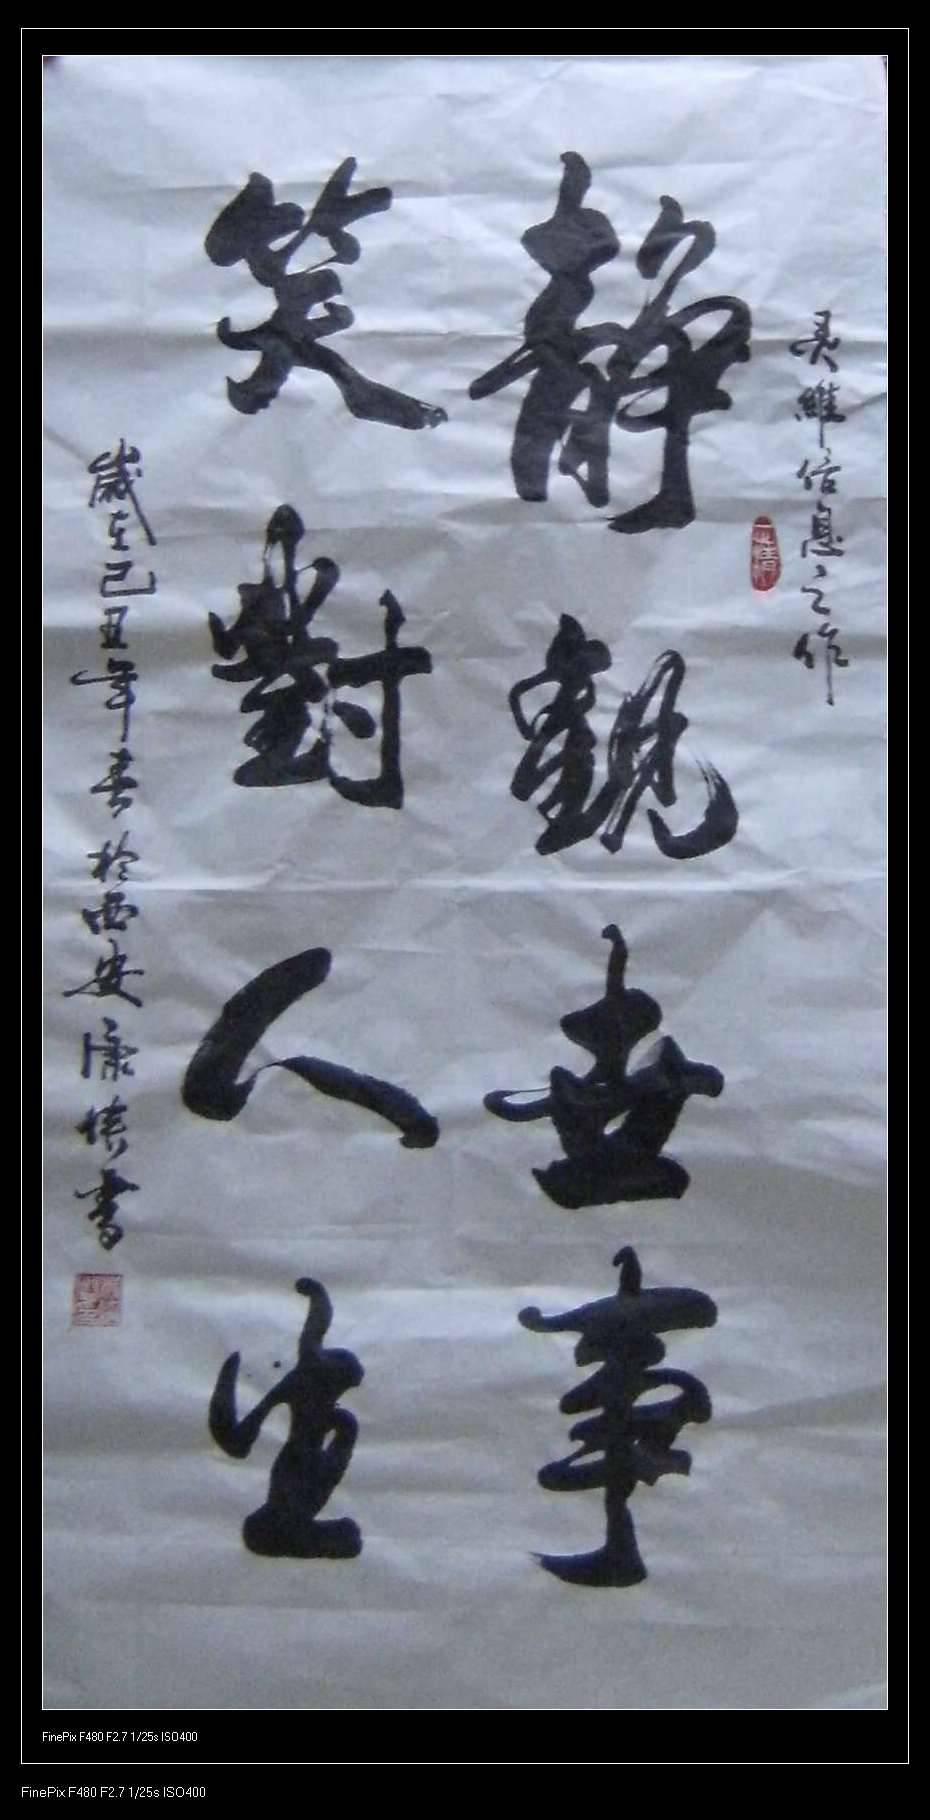 灵維信息之作
静觀世事
笑對人生
歲在己丑年春於西安康侠書
FinePix F480 F2.7 1/25s ISO400
FinePix F480 F2.7 1/25s ISO400